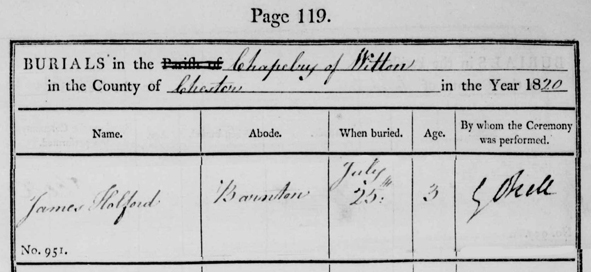 Page 119.
BURIALS in the Parish of Chapelry of Witton
in the County of Chester in the Year 1820
Name. Abode. When buried. Age. By whom the Ceremony was performed.
James Holford Barnton July 25th 3
No. 951.